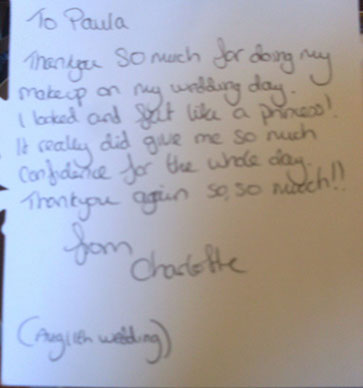 To Paula
Thankyou so much for doing my
makeup on my wedding day.
I looked and felt like a princess!
It really did give me so much
confidence for the whole day.
Thankyou again so, so much!!
from
Charlotte
(Auglish wedding)